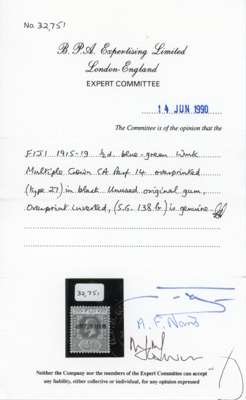 No. 32,751
B. P. A. Expertising Limited
London-England
EXPERT COMMITTEE
14 JUN 1990
The Committee is of the opinion that the
FIJI 1915-19 ½d. blue-green Wmk
Multiple Crown CA Perf 14 overprinted
(type 27) in black Unused original gum,
Overprint Inverted, (S.G. 138b) is genuine
32,751
Neither the Company nor the members of the Expert Committee can accept
any liability, either collective or individual, for any opinion expressed